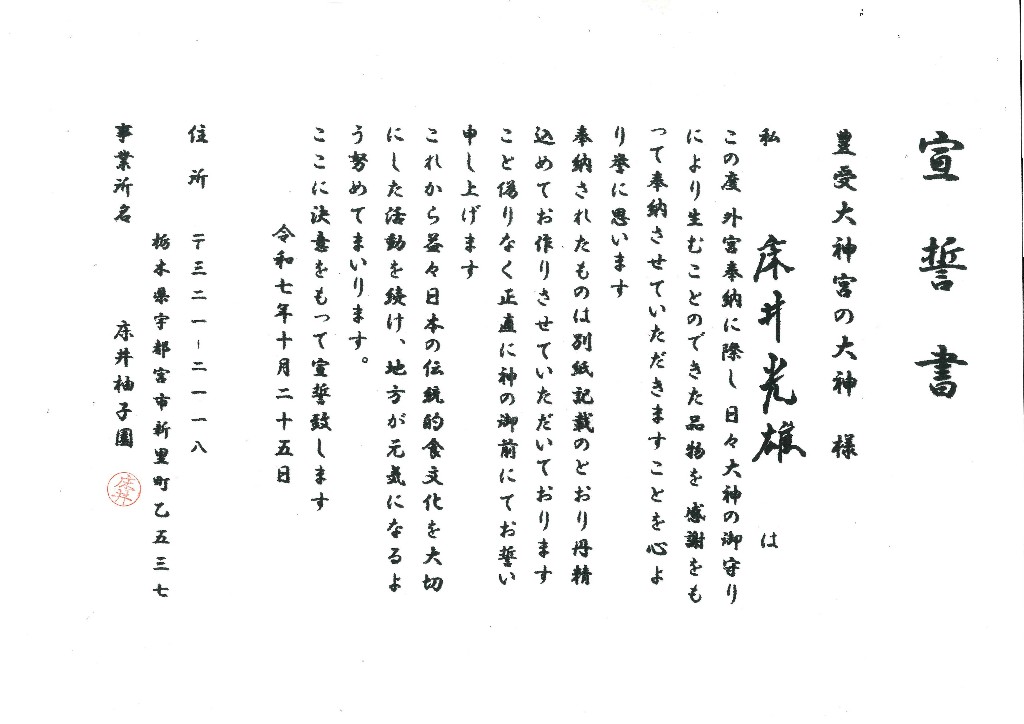 宣誓書
豊受大神宮の大神　様
私　床井光雄　は
この度 外宮奉納に際し 日々大神の御守り
により生むことのできた品物を 感謝をも
って奉納させていただきますことを心よ
り誉に思います
奉納されたものは別紙記載のとおり丹精
込めてお作りさせていただいております
こと偽りなく正直に神の御前にてお誓い
申し上げます
これから益々日本の伝統的食文化を大切
にした活動を続け、地方が元気になるよ
う努めてまいります。
ここに決意をもって宣誓致します
令和七年十月二十五日
住所　〒三二一－二一一八
栃木県宇都宮市新里町乙五三七
事業所名　床井柚子園
床井